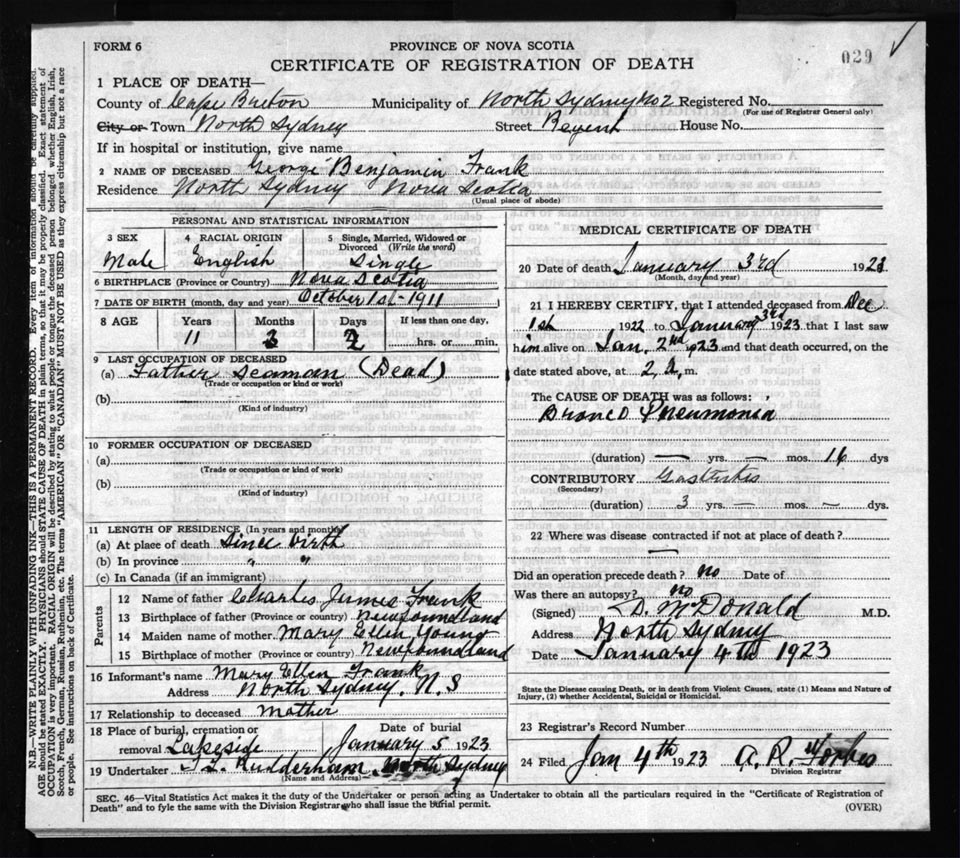 FORM 6
PROVINCE OF NOVA SCOTIA
CERTIFICATE OF REGISTRATION OF DEATH
029
1 PLACE OF DEATH—
County of Cape Breton Municipality of North Sydney No 2 Registered No.
(For use of Registrar General only)
City or Town North Sydney Street Regent House No.
If in hospital or institution, give name
2 NAME OF DECEASED George Benjamin Frank
Residence North Sydney Nova Scotia
(Usual place of abode)
PERSONAL AND STATISTICAL INFORMATION
3 SEX
Male
4 RACIAL ORIGIN
English
5 Single, Married, Widowed or Divorced (Write the word)
Single
6 BIRTHPLACE (Province or Country) Nova Scotia
7 DATE OF BIRTH (month, day and year) October 1st-1911
8 AGE Years Months Days If less than one day,
11 3 2 hrs. or min.
9 LAST OCCUPATION OF DECEASED
(a) Father Seaman (Dead)
(Trade or occupation or kind of work)
(b)
(Kind of industry)
10 FORMER OCCUPATION OF DECEASED
(a)
(Trade or occupation or kind of work)
(b)
(Kind of industry)
11 LENGTH OF RESIDENCE (In years and months)
(a) At place of death Since birth
(b) In province " "
(c) In Canada (if an immigrant)
Parents
12 Name of father Charles James Frank
13 Birthplace of father (Province or country) Newfoundland
14 Maiden name of mother Mary Ellen Young
15 Birthplace of mother (Province or country) Newfoundland
16 Informant's name Mary Ellen Frank
Address North Sydney. N.S
17 Relationship to deceased Mother
18 Place of burial, cremation or removal Lakeside
Date of burial
January 5 1923
19 Undertaker Rudderham North Sydney
(Name and Address)
MEDICAL CERTIFICATE OF DEATH
20 Date of death January 3rd 1923
(Month, day and year)
21 I HEREBY CERTIFY, that I attended deceased from Dec
1st 1922 to January 3rd 1923 that I last saw
him alive on Jan. 2nd 1923 and that death occurred, on the
date stated above, at 2 a, m.
The CAUSE OF DEATH was as follows:
Pneumonia
(duration) — yrs. — mos. 16 dys
CONTRIBUTORY Gastritis
(Secondary)
(duration) 3 yrs. — mos. — dys.
22 Where was disease contracted if not at place of death?
—
Did an operation precede death? no Date of
Was there an autopsy? no
(Signed) D. McDonald M.D.
Address North Sydney
Date January 4th 1923
State the Disease causing Death, or in death from Violent Causes, state (1) Means and Nature of Injury, (2) whether Accidental, Suicidal or Homicidal.
23 Registrar's Record Number
24 Filed Jan 4th 1923 A. R. Forbes
Division Registrar
SEC. 46—Vital Statistics Act makes it the duty of the Undertaker or person acting as Undertaker to obtain all the particulars required in the "Certificate of Registration of
Death" and to fyle the same with the Division Registrar who shall issue the burial permit.
(OVER)
N.B.—WRITE PLAINLY WITH UNFADING INK—THIS IS A PERMANENT RECORD. Every item of information should be carefully supplied.
AGE should be stated EXACTLY. PHYSICIANS should STATE CAUSE OF DEATH in plain terms, so that it may be properly classified. Exact statement of
OCCUPATION is very important. RACIAL ORIGIN will be described by stating to what people or tongue the deceased person belonged whether English, Irish,
Scotch, French, German, Russian, Ruthenian, etc. The terms "AMERICAN" OR "CANADIAN" MUST NOT BE USED as they express citizenship but not a race
or people. See instructions on back of Certificate.